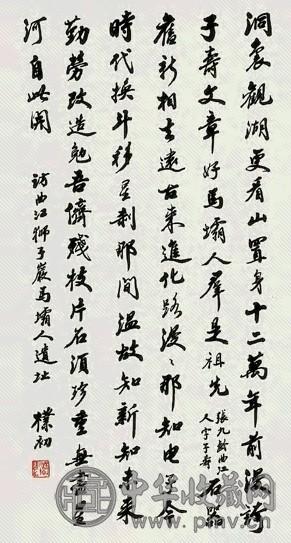 洞裏觀湖更看山置身十二萬年前漫誇
子壽文章好馬壩人羣是祖先 張九齡曲江人字子壽 石器
舊新相去遠古來進化路漫々那知电子今
時代換斗移星刹那間溫故知新知未來
勤勞改造勉吾儕殘枝片石須珍重無盡星
河自此開 訪曲江獅子巖馬壩人遺址 樸初
中华收藏网
www.pmv.cn